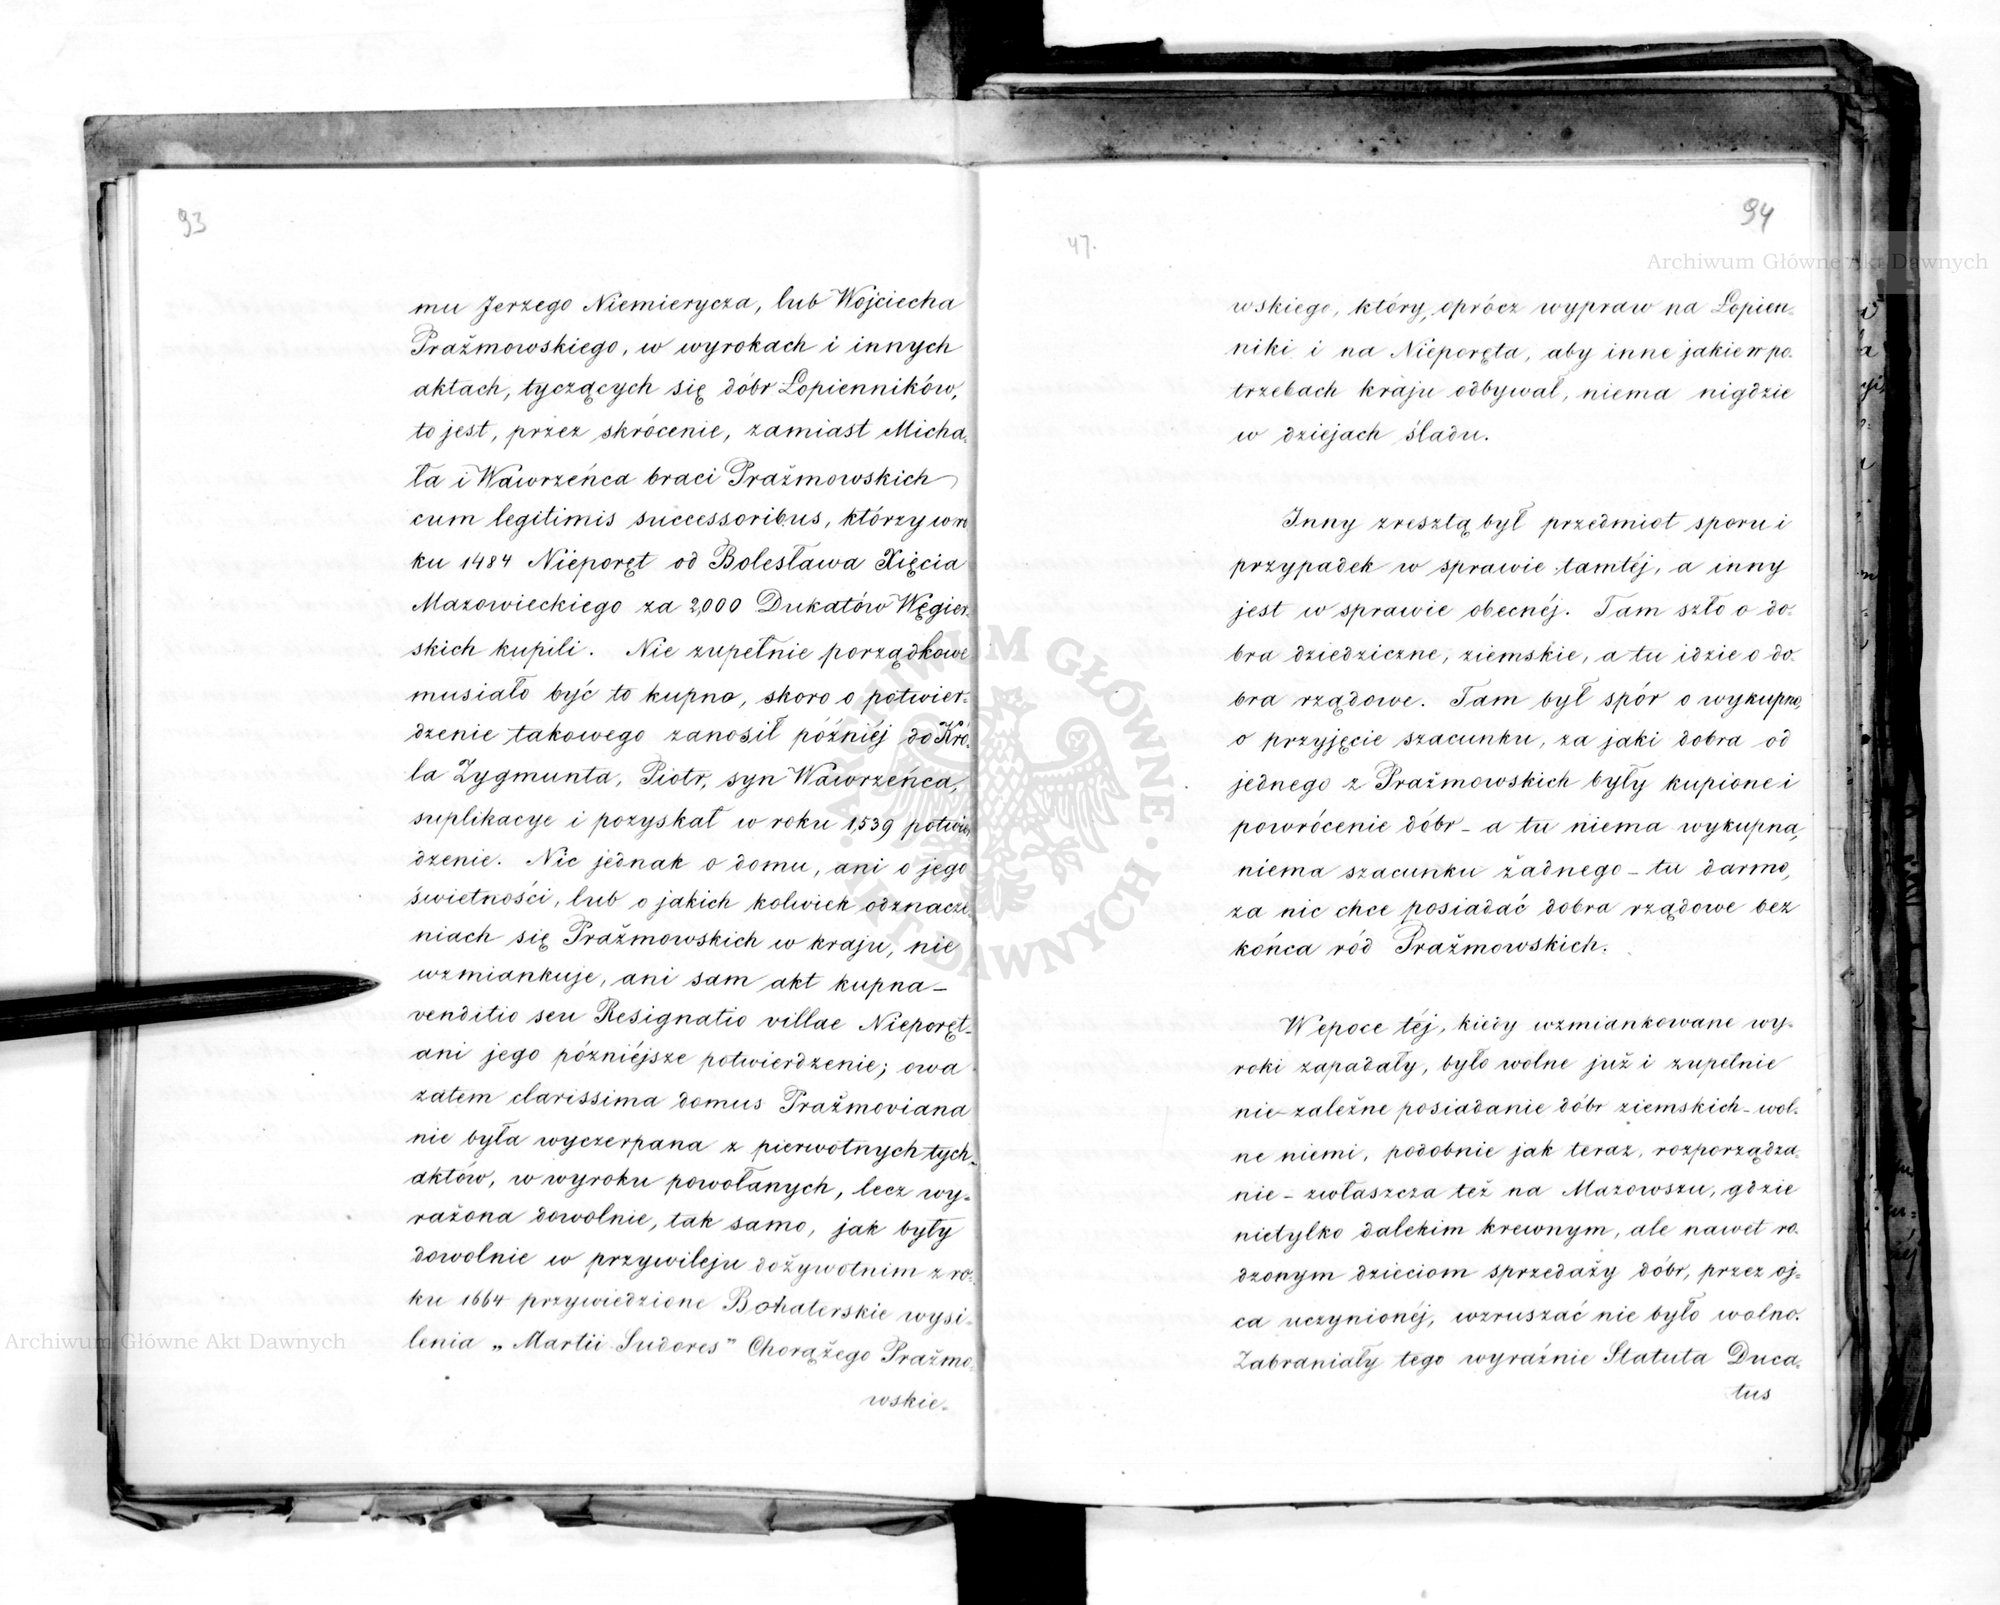 93
mu Jerzego Niemierycza, lub Wojciecha
Prażmowskiego, w wyrokach i innych
aktach, tyczących się dóbr Łopienników,
to jest, przez skrócenie, zamiast Micha-
ła i Wawrzeńca braci Prażmowskich
cum legitimis successoribus, którzy w ro
ku 1484 Nieporęt od Bolesława Xięcia
Mazowieckiego za 2,000 Dukatów Węgier-
skich kupili. Nie zupełnie porządkowe
musiało być to kupno, skoro o potwier-
dzenie takowego zanosił późniéj do Kró-
la Zygmunta, Piotr, syn Wawrzeńca,
suplikacye i pozyskał w roku 1,539 potwier
dzenie. Nic jednak o domu, ani o jego
świetności, lub o jakich kolwiek odznacze-
niach się Prażmowskich w kraju, nie
wzmiankuje, ani sam akt kupna –
venditio seu Resignatio villae Nieporęt –
ani jego późniéjsze potwierdzenie; owa
zatem clarissima domus Prażmoviana
nie była wyczerpana z pierwotnych tych
aktów, w wyroku powołanych, lecz wy-
rażona dowolnie, tak samo, jak były
dowolnie w przywileju dożywotnim z ro-
ku 1664 przywiedzione Bohaterskie wysi-
lenia „Martii Sudores” Chorążego Prażmo-
wskie-
94
47.
wskiego, który, oprócz wypraw na Łopien-
niki i na Nieporęta, aby inne jakie w po-
trzebach kraju odbywał, niema nigdzie
w dziejach śladu.
Inny zresztą był przedmiot sporu i
przypadek w sprawie tamtéj, a inny
jest w sprawie obecnéj. Tam szło o do-
bra dziedziczne, ziemskie, a tu idzie o do-
bra rządowe. Tam był spór o wykupno,
o przyjęcie szacunku, za jaki dobra od
jednego z Prażmowskich były kupione i
powrócenie dóbr – a tu niema wykupna,
niema szacunku żadnego – tu darmo,
za nic chce posiadać dobra rządowe bez
końca ród Prażmowskich.
W epoce téj, kiedy wzmiankowane wy-
roki zapadały, było wolne już i zupełnie
nie-zależne posiadanie dóbr ziemskich – wol-
ne niemi, podobnie jak teraz, rozporządza-
nie – zwłaszcza też na Mazowszu, gdzie
nietylko dalekim krewnym, ale nawet ro-
dzonym dzieciom sprzedaży dóbr, przez oj-
ca uczynionéj, wzruszać nie było wolno.
Zabraniały tego wyraźnie Statuta Duca-
tus
Archiwum Główne Akt Dawnych
Archiwum Główne Akt Dawnych
ARCHIWUM GŁÓWNE AKT DAWNYCH